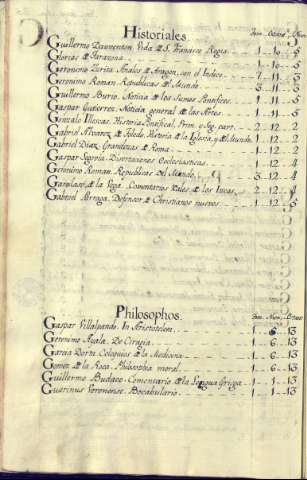 Historiales.
Guillermo Daumenton. Vida de S. Francisco Regis. 1 . 10 . 5
Glorias de Tarazona. 1 . 10 . 5
Geronimo Zurita. Anales de Aragon, con el Indice. 7 . 11 . 3
Geronimo Roman. Republicas del Mundo. 3 . 11 . 3
Guillermo Burio. Noticia de los Sumos Pontifices. 1 . 11 . 5
Gaspar Gutierrez. Noticia general de las Artes. 1 . 11 . 5
Gonzalo Illescas. Historia Pontifical. 2 . 12 . 2
Gabriel Alvarez de Toledo. Historia de la Iglesia, y del Mundo. 1 . 12 . 2
Gabriel Diaz. Grandezas de Roma. 1 . 12
Gaspar Disertaciones Eclesiasticas. 1 . 12 . 4
Geronimo Roman. Republicas del Mundo. 3 . 12 . 4
Garcilaso de la Vega. Comentarios Reales de los Incas. 2 . 12
Gabriel Defensor de Christianos nuevos. 1 . 12 . 5
Philosophos.
Gaspar Villalpando. In Aristotelem. 1 . 6 . 13
Geronimo Ayala. De Cirugia. 1 . 6 . 13
Garcia Dorta. Coloquios de la Medicina. 1 . 6 . 13
Gomez de la Roca. Philosophia moral. 1 . 6 . 13
Guillermo Budaeo. Comentario de la Lengua Griega. 1 . 1 . 13
Guarinus Veronense. Bocabulario. 1 . 1 . 13